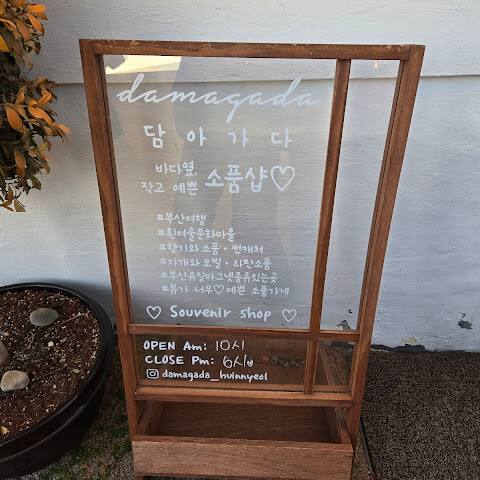 damagada
담아가다
바다옆,
작고 예쁜 소품샵♡
#부산여행
#흰여울문화마을
#향기와 소품·썬캐쳐
#자개와 모빌·라탄소품
#부산유일마그넷종류있는곳
#뷰가 너무♡예쁜 소품가게
♡ Souvenir shop ♡
OPEN Am: 10시
CLOSE Pm: 6시
damagada_huinnyeol